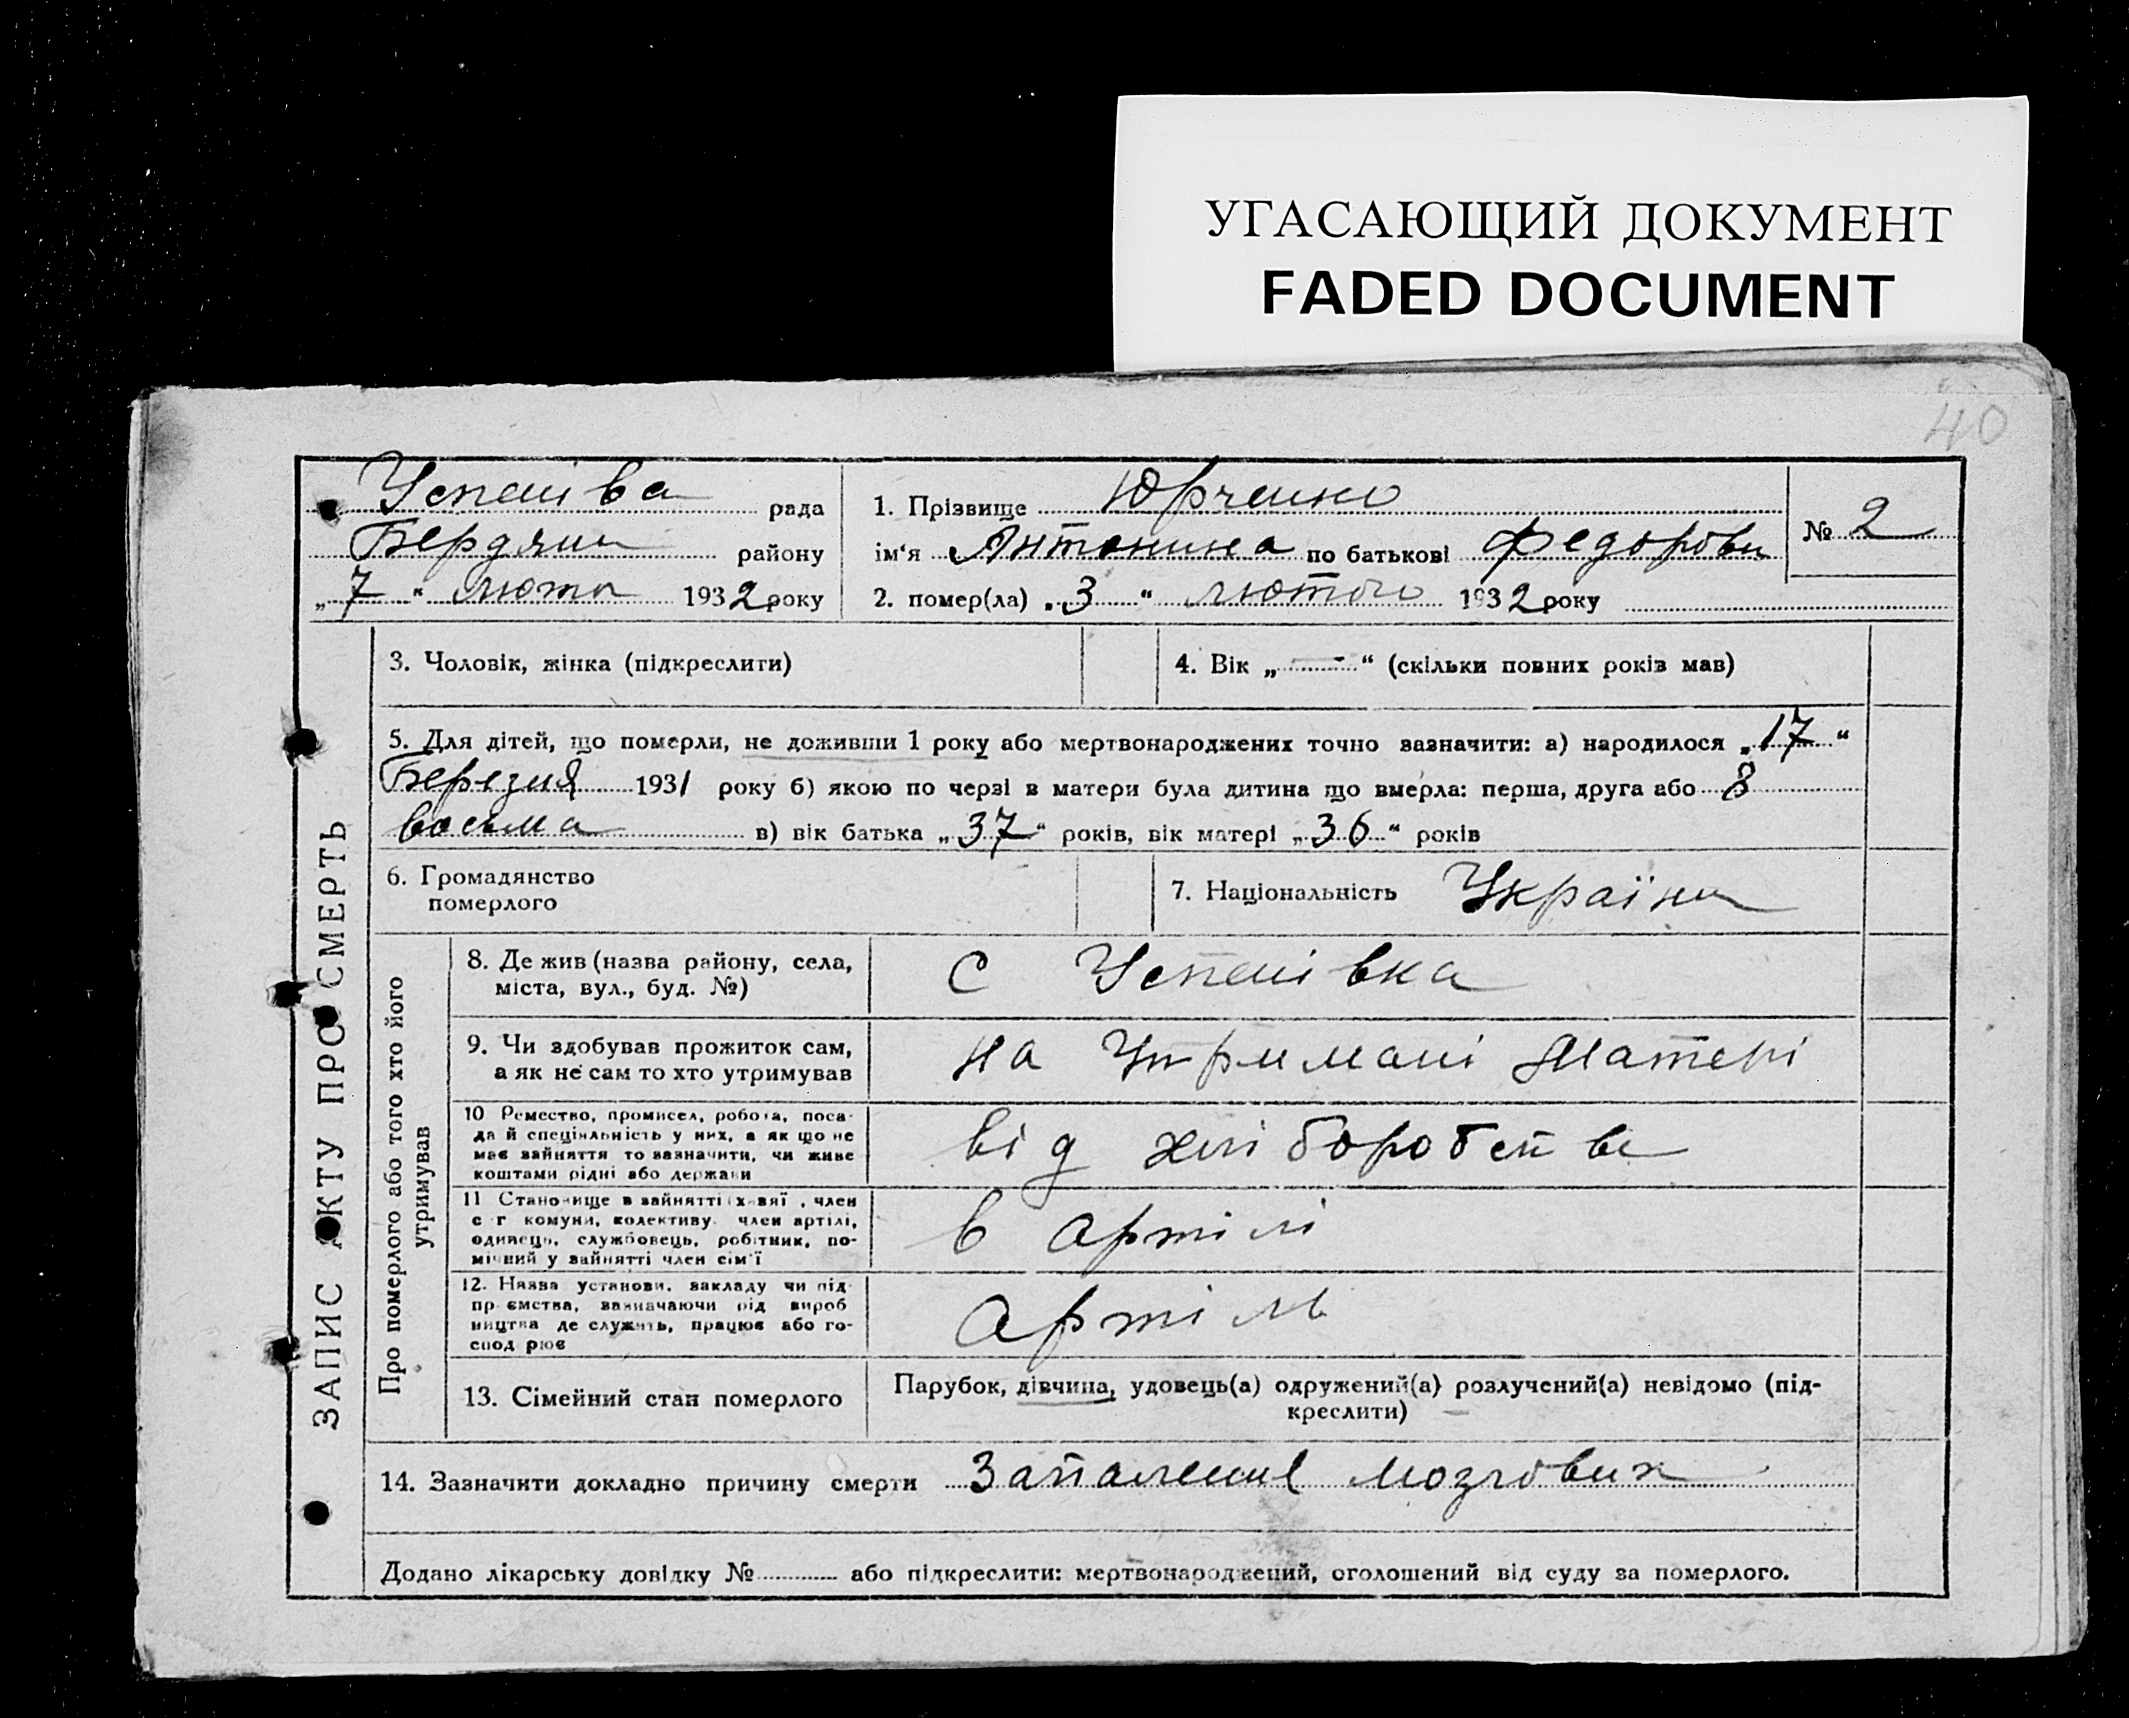 УГАСАЮЩИЙ ДОКУМЕНТ
FADED DOCUMENT
40
Успенівса рада
Бердянс району
„7“ люто 1932 року
1. Прізвище Юрченко
ім‘я Антонина по батькові Федорови
2. помер(ла) „3“ лютого 1932 року
№ 2
ЗАПИС АКТУ ПРО СМЕРТЬ
3. Чоловік, жінка (підкреслити)
4. Вік „ - “ (скільки повних років мав)
5. Для дітей, що померли, не доживши 1 року або мертвонароджених точно зазначити: а) народилося „17“
Березня 1931 року б) якою по черзі в матери була дитина що вмерла: перша, друга або 8
восьма в) вік батька „37“ років, вік матері „36“ років
6. Громадянство
померлого
7. Національність Україн
Про померлого або того хто його
утримував
8. Де жив (назва району, села,
міста, вул., буд. №)
с Успенівка
9. Чи здобував прожиток сам,
а як не сам то хто утримував
на Утримані Матері
10 Ремество, промисел, робота, поса-
да й спеціяльність у них, а як що не
має зайняття то зазначити, чи живе
коштами рідні або держави
від хліборобств
11 Становище в зайнятті (хазяї, член
с г комуни, колективу член артілі,
одинець, службовець, робітник, по-
мічний у зайнятті член сім'ї
в артілі
12. Назва установи, закладу чи під-
приємства, зазначаючи рід вироб
ництва де служить, працює або го-
сподарює
Артіль
13. Сімейний стан померлого
Парубок, дівчина, удовець(а) одружений(а) розлучений(а) невідомо (під-
креслити)
14. Зазначити докладно причину смерти Запаленнє мозгових
Додано лікарську довідку № або підкреслити: мертвонароджений, оголошений від суду за померлого.